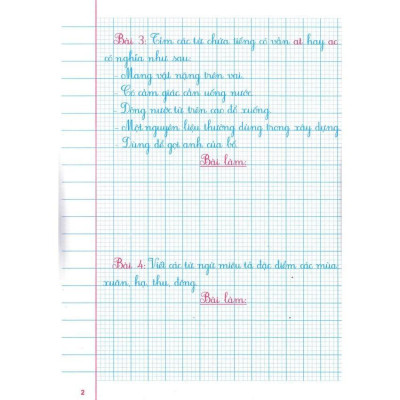 Bài 3: Tìm các từ chứa tiếng có vần at hay ac
có nghĩa như sau:
- Mang vật nặng trên vai.
- Có cảm giác cần uống nước.
- Dòng nước từ trên cao đổ xuống.
- Một nguyên liệu thường dùng trong xây dựng.
- Dùng để gọi anh của bố.
Bài làm:
Bài 4: Viết các từ ngữ miêu tả đặc điểm các mùa:
xuân, hạ, thu, đông.
Bài làm:
2